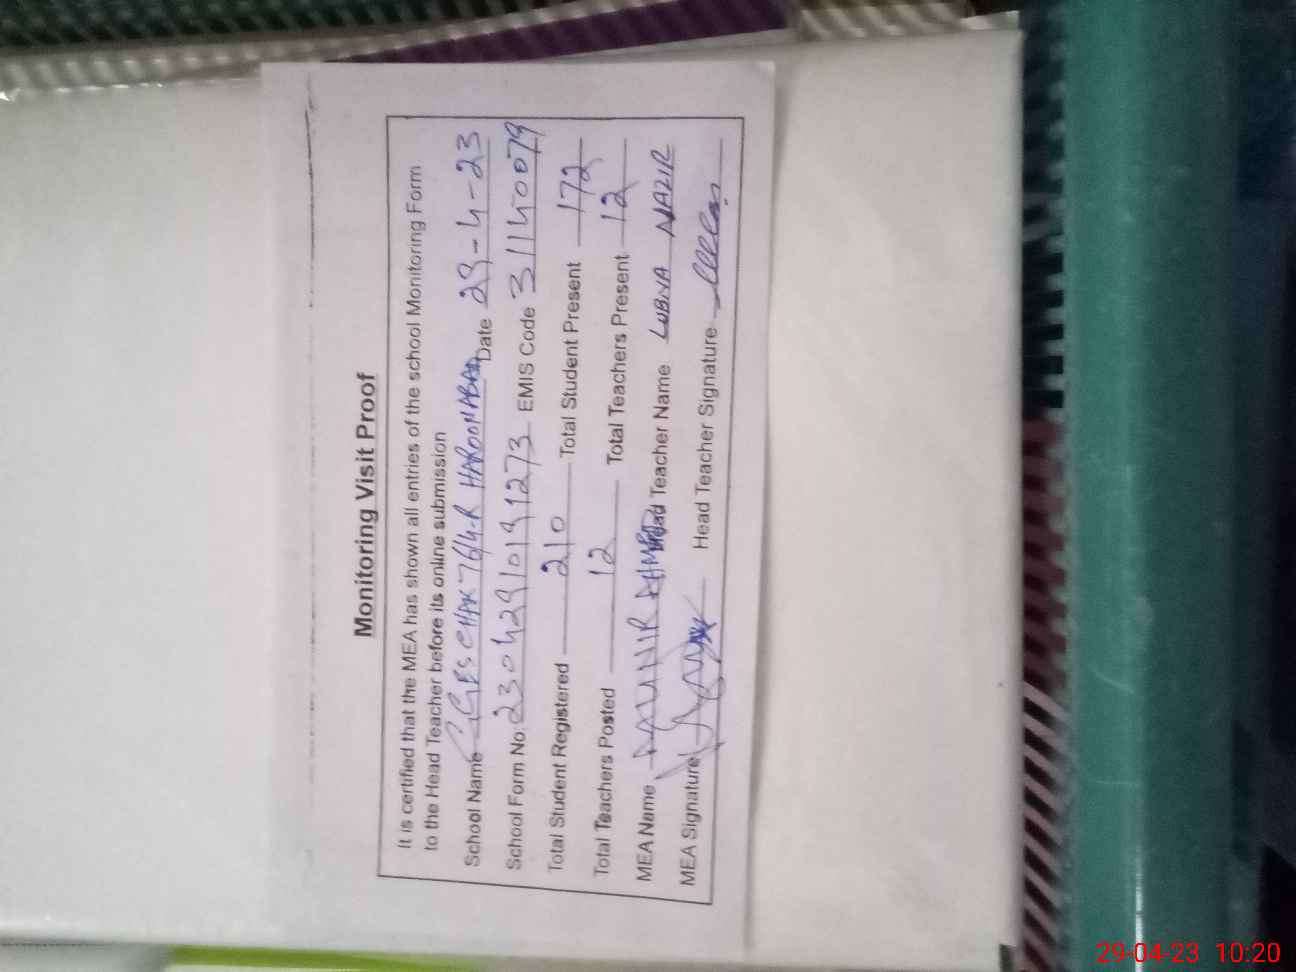 Monitoring Visit Proof
It is certified that the MEA has shown all entries of the school Monitoring Form
to the Head Teacher before its online submission
School Name GGES CHAK 76/4-R HAROONABAD Date 29-4-23
School Form No: 23042910191273 EMIS Code 31140079
Total Student Registered 210 Total Student Present 172
Total Teachers Posted 12 Total Teachers Present 12
MEA Name MUNIR AHMED Head Teacher Name LUBNA NAZIR
MEA Signature Head Teacher Signature
29-04-23 10:20